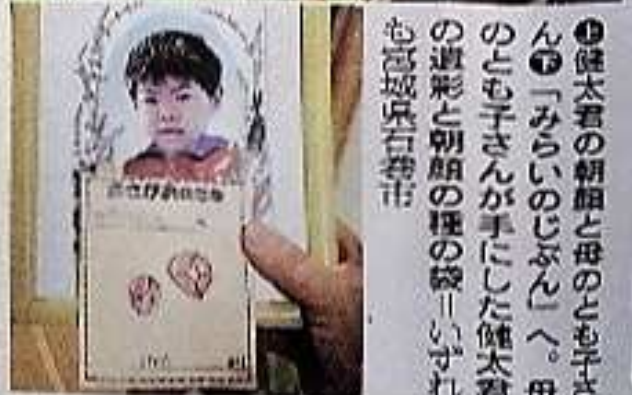 ㊤健太君の朝顔と母のとも子さ
ん㊦「みらいのじぶん」へ。母
のとも子さんが手にした健太君
の遺影と朝顔の種の袋＝いずれ
も宮城県石巻市
あさがおのたね